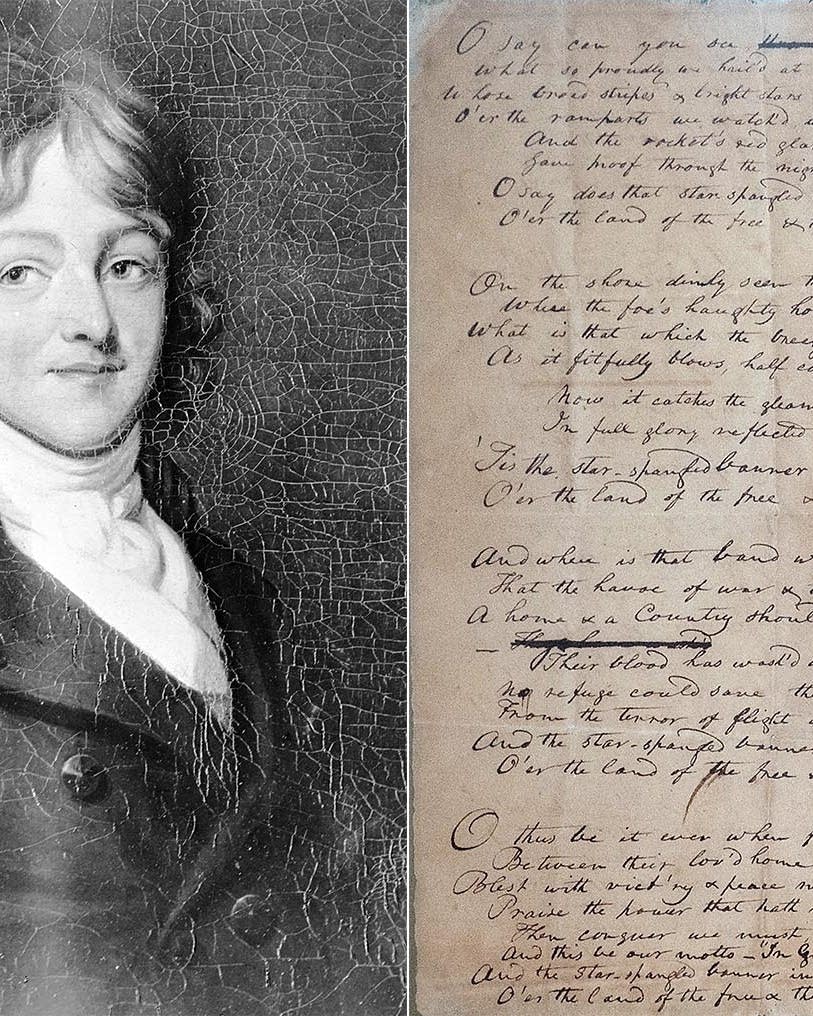 O say can you see
What so proudly we hail'd at
Whose broad stripes & bright stars
O'er the ramparts we watch'd
And the rocket's red
Gave proof through the
O say does that star-spangled
O'er the land of the free &
On the shore dimly seen
Where the foe's haughty
What is that which the
As it fitfully blows, half
Now it catches the
In full glory reflected
'Tis the star-spangled banner
O'er the land of the free
And where is that band
That the havoc of war &
A home & a Country
Their blood has wash'd
No refuge could save
From the terror of flight
And the star-spangled
O'er the land of the free
O thus be it ever when
Between their lov'd home
Blest with vict'ry & peace
Praise the power that hath
Then conquer we must
And this be our motto — "In
And the star-spangled banner in
O'er the land of the free &